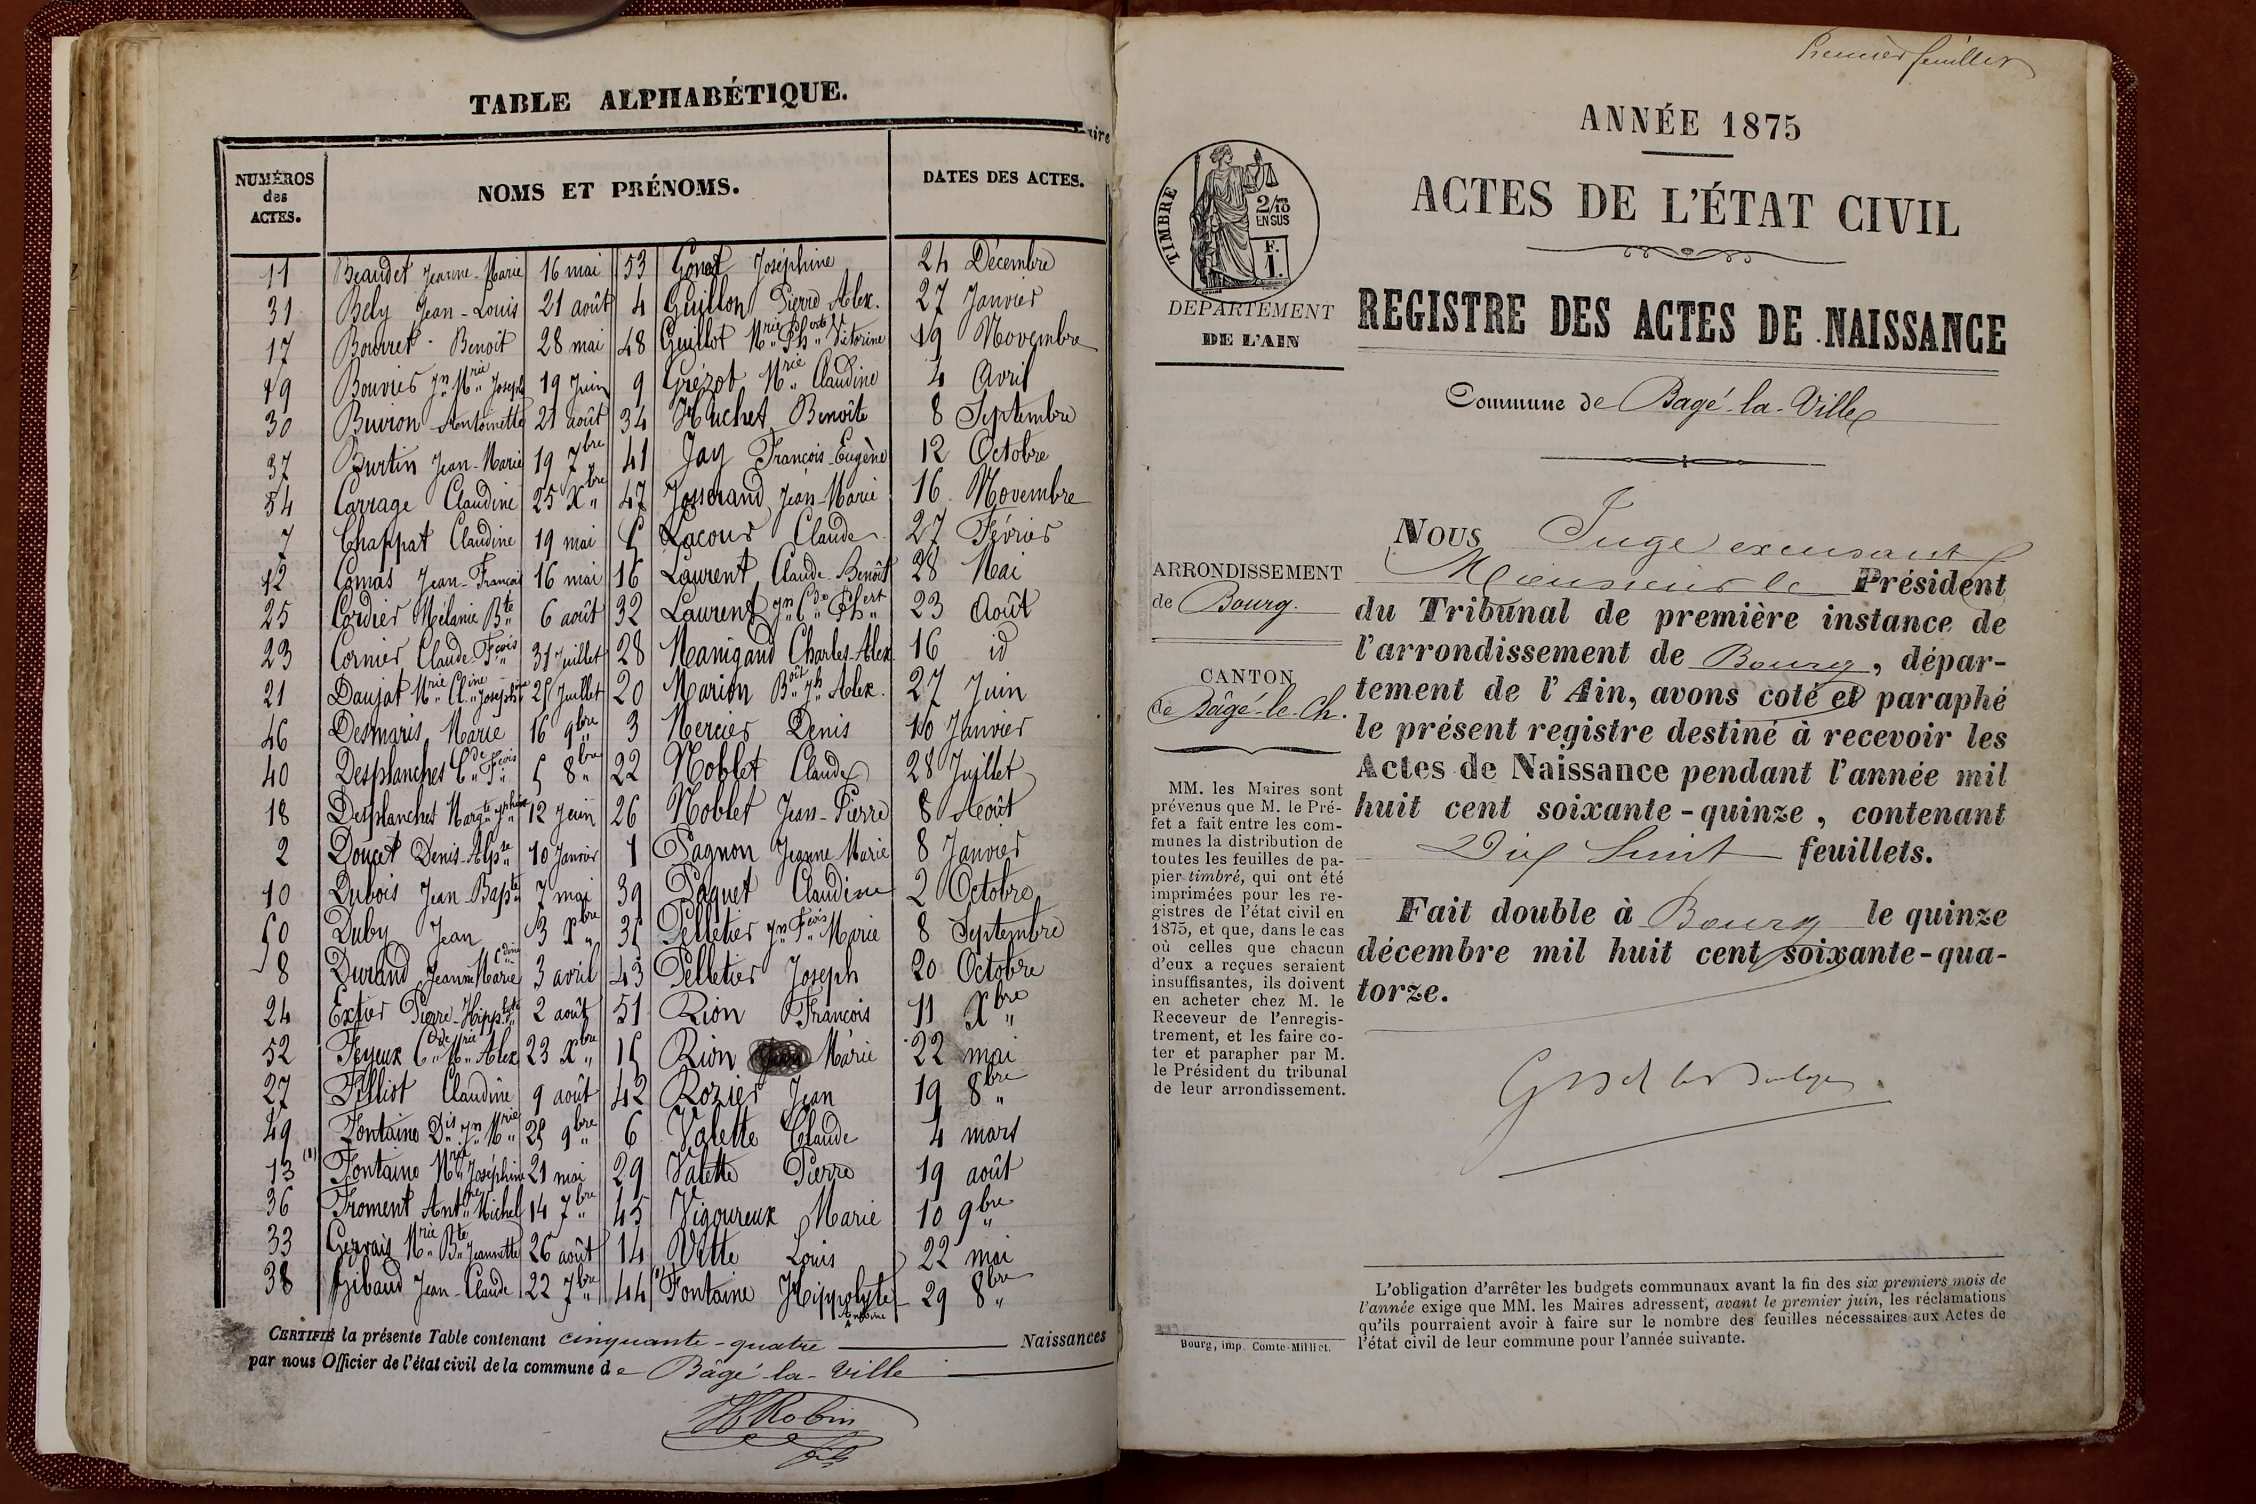 TABLE ALPHABÉTIQUE.
NUMÉROS des ACTES.
NOMS ET PRÉNOMS.
DATES DES ACTES.
aire
11 Beaudet Jeanne-Marie 16 mai 53 Gonet Joséphine 24 Décembre
31 Bély Jean-Louis 21 août 4 Guillon Pierre Alex. 27 Janvier
17 Bourret Benoît 28 mai 48 Guillot Mrie Phte Victorine 19 Novembre
19 Bouvier Jn Mrie Joseph 19 Juin 9 Grézot Mrie Claudine 4 Avril
30 Buvron Antoinette 21 août 34 Huchet Benoîte 8 Septembre
37 Burtin Jean-Marie 19 7bre 41 Jay François-Eugène 12 Octobre
54 Carrage Claudine 25 Xbre 47 Josserand Jean-Marie 16 Novembre
7 Chappat Claudine 19 mai 5 Lacour Claude 27 Février
12 Comas Jean-François 16 mai 16 Laurent Claude-Benoît 28 Mai
25 Cordier Mélanie Bte 6 août 32 Laurent Jn Cde Phert 23 Août
23 Cornier Claude-Fcois 31 Juillet 28 Manigand Charles-Alex 16 id
21 Daujat Mrie Cline Joséphine 25 Juillet 20 Marion Boît Jh Alex. 27 Juin
46 Desmaris Marie 16 9bre 3 Mercier Denis 10 Janvier
40 Desplanches Cde Fcois 5 8bre 22 Noblet Claude 28 Juillet
18 Desplanches Margte Jphine 12 Juin 26 Noblet Jean-Pierre 8 Août
2 Doucet Denis-Alpse 10 Janvier 1 Pagnon Jeanne Marie 8 Janvier
10 Dubois Jean-Bapte 7 mai 39 Paquet Claudine 2 Octobre
50 Duby Jean 3 Xbre 35 Pelletier Jn Fcois Marie 8 Septembre
8 Durand Jeanne Marie Cdine 3 avril 43 Pelletier Joseph 20 Octobre
24 Extier Pierre-Hippte 2 août 51 Rion François 11 Xbre
52 Feyeux Cde Mrie Alex 23 Xbre 15 Rion Marie 22 mai
27 Filliot Claudine 9 août 42 Rozier Jean 19 8bre
49 Fontaine Dis Jn Mrie 25 9bre 6 Valette Claude 4 mars
13 (1) Fontaine Mrie Joséphine 21 mai 29 Valette Pierre 19 août
36 Froment Antne Michel 14 7bre 45 Vigoureux Marie 10 9bre
33 Gervais Mrie Bte Jeannette 26 août 14 Vitte Louis 22 mai
38 Gibaud Jean-Claude 22 7bre 44 (1) Fontaine Hippolyte Antoine 29 8bre
CERTIFIÉ la présente Table contenant cinquante-quatre Naissances
par nous Officier de l'état civil de la commune de Bâgé-la-Ville
H Robin
fils
Premier feuillet
ANNÉE 1875
ACTES DE L'ÉTAT CIVIL
REGISTRE DES ACTES DE NAISSANCE
TIMBRE
2/10 EN SUS
F. 1.
DEPARTEMENT
DE L'AIN
Commune de Bagé-la-Ville
ARRONDISSEMENT
de Bourg.
CANTON
de Bâgé-le-Ch.
MM. les Maires sont
prévenus que M. le Pré-
fet a fait entre les com-
munes la distribution de
toutes les feuilles de pa-
pier timbré, qui ont été
imprimées pour les re-
gistres de l'état civil en
1875, et que, dans le cas
où celles que chacun
d'eux a reçues seraient
insuffisantes, ils doivent
en acheter chez M. le
Receveur de l'enregis-
trement, et les faire co-
ter et parapher par M.
le Président du tribunal
de leur arrondissement.
Bourg, imp. Comte-Milliet.
NOUS Juge excusant
Monsieur le Président
du Tribunal de première instance de
l'arrondissement de Bourg, dépar-
tement de l'Ain, avons coté et paraphé
le présent registre destiné à recevoir les
Actes de Naissance pendant l'année mil
huit cent soixante-quinze, contenant
Dix huit feuillets.
Fait double à Bourg le quinze
décembre mil huit cent soixante-qua-
torze.
L'obligation d'arrêter les budgets communaux avant la fin des six premiers mois de
l'année exige que MM. les Maires adressent, avant le premier juin, les réclamations
qu'ils pourraient avoir à faire sur le nombre des feuilles nécessaires aux Actes de
l'état civil de leur commune pour l'année suivante.